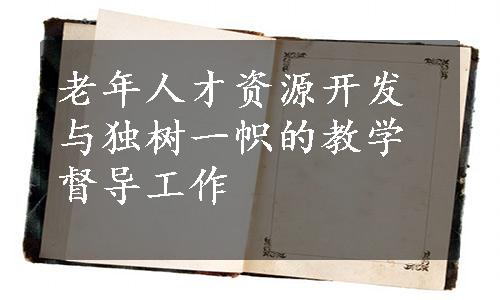 老年人才资源开发
与独树一帜的教学
督导工作